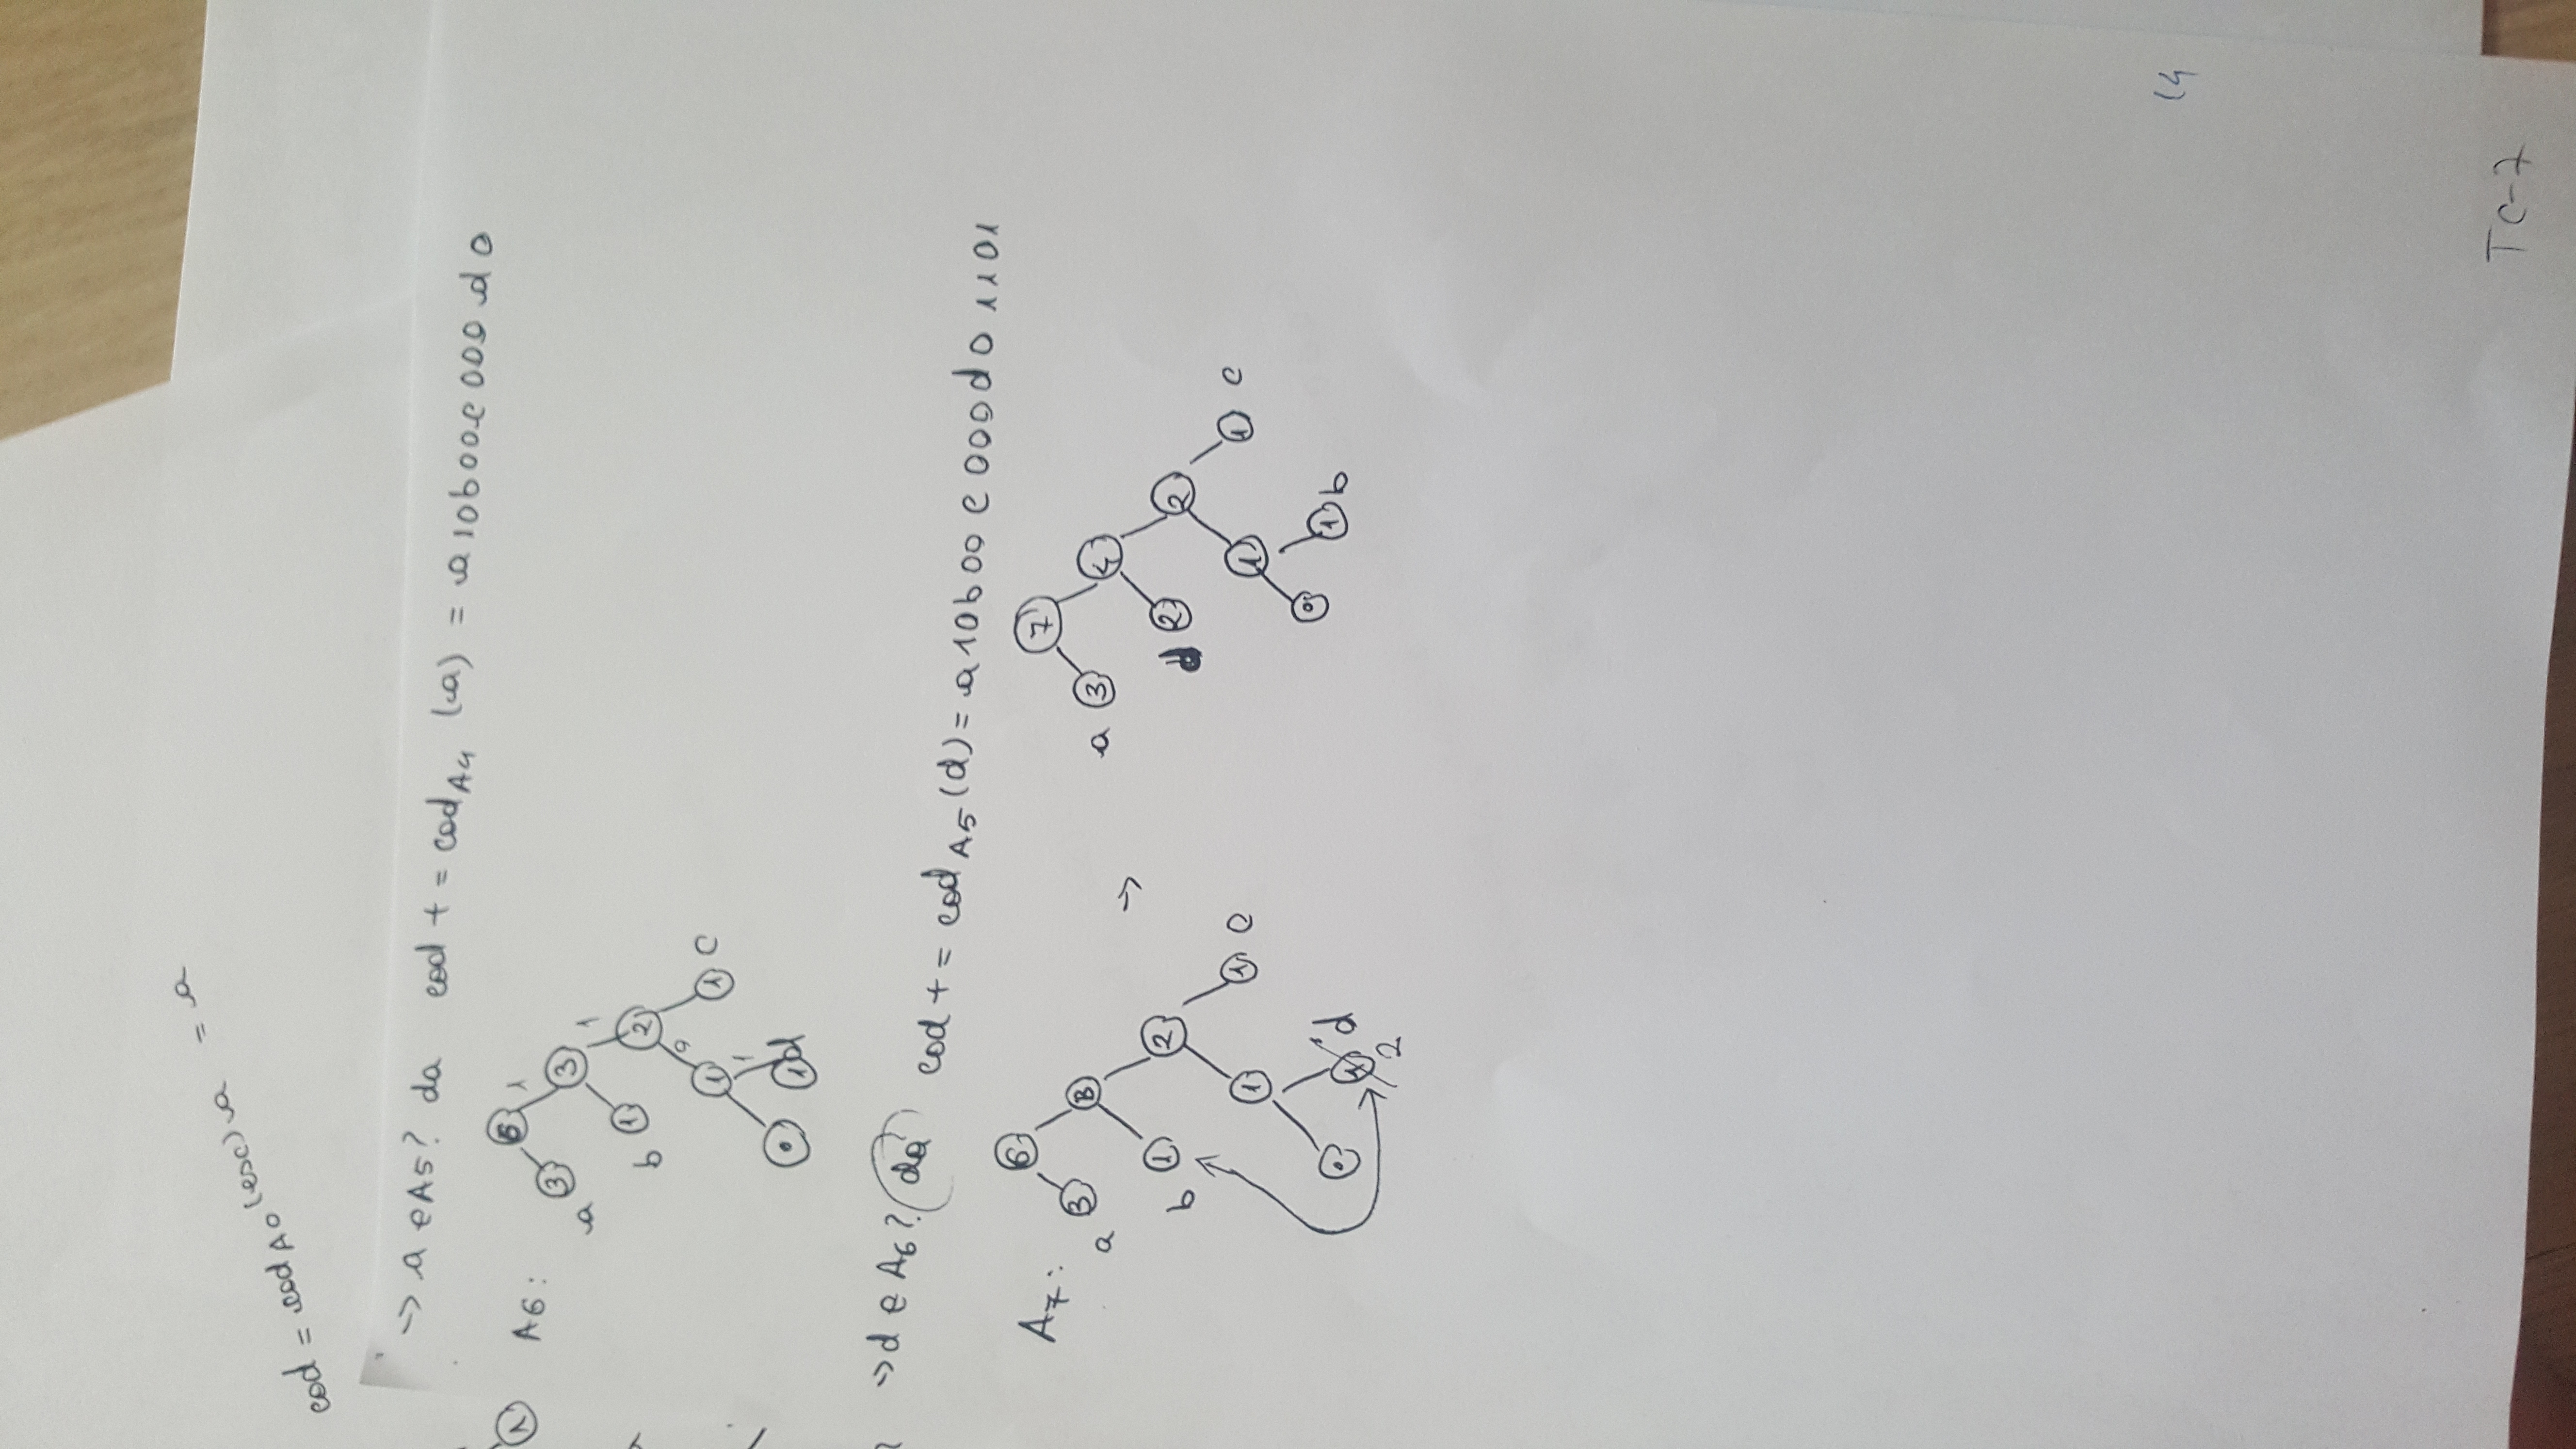 cod = cod A0 (esc) a = a
-> a e A5? da cod += cod A4 (a) = a 10b00c 000 d 0
1
A6: 6 1
3 3
a 1
b 1 2
0
1 1 c
1
0 1 d
-> d e A6? da cod += cod A5 (d) = a 10b 00 c 000 d 0 1101
A7: 6 7
3 3 a 3 4
a
b 1 2 -> d 2 2
1 1 c 1 1 c
0 1 d 0 1 b
2
14
TC-7